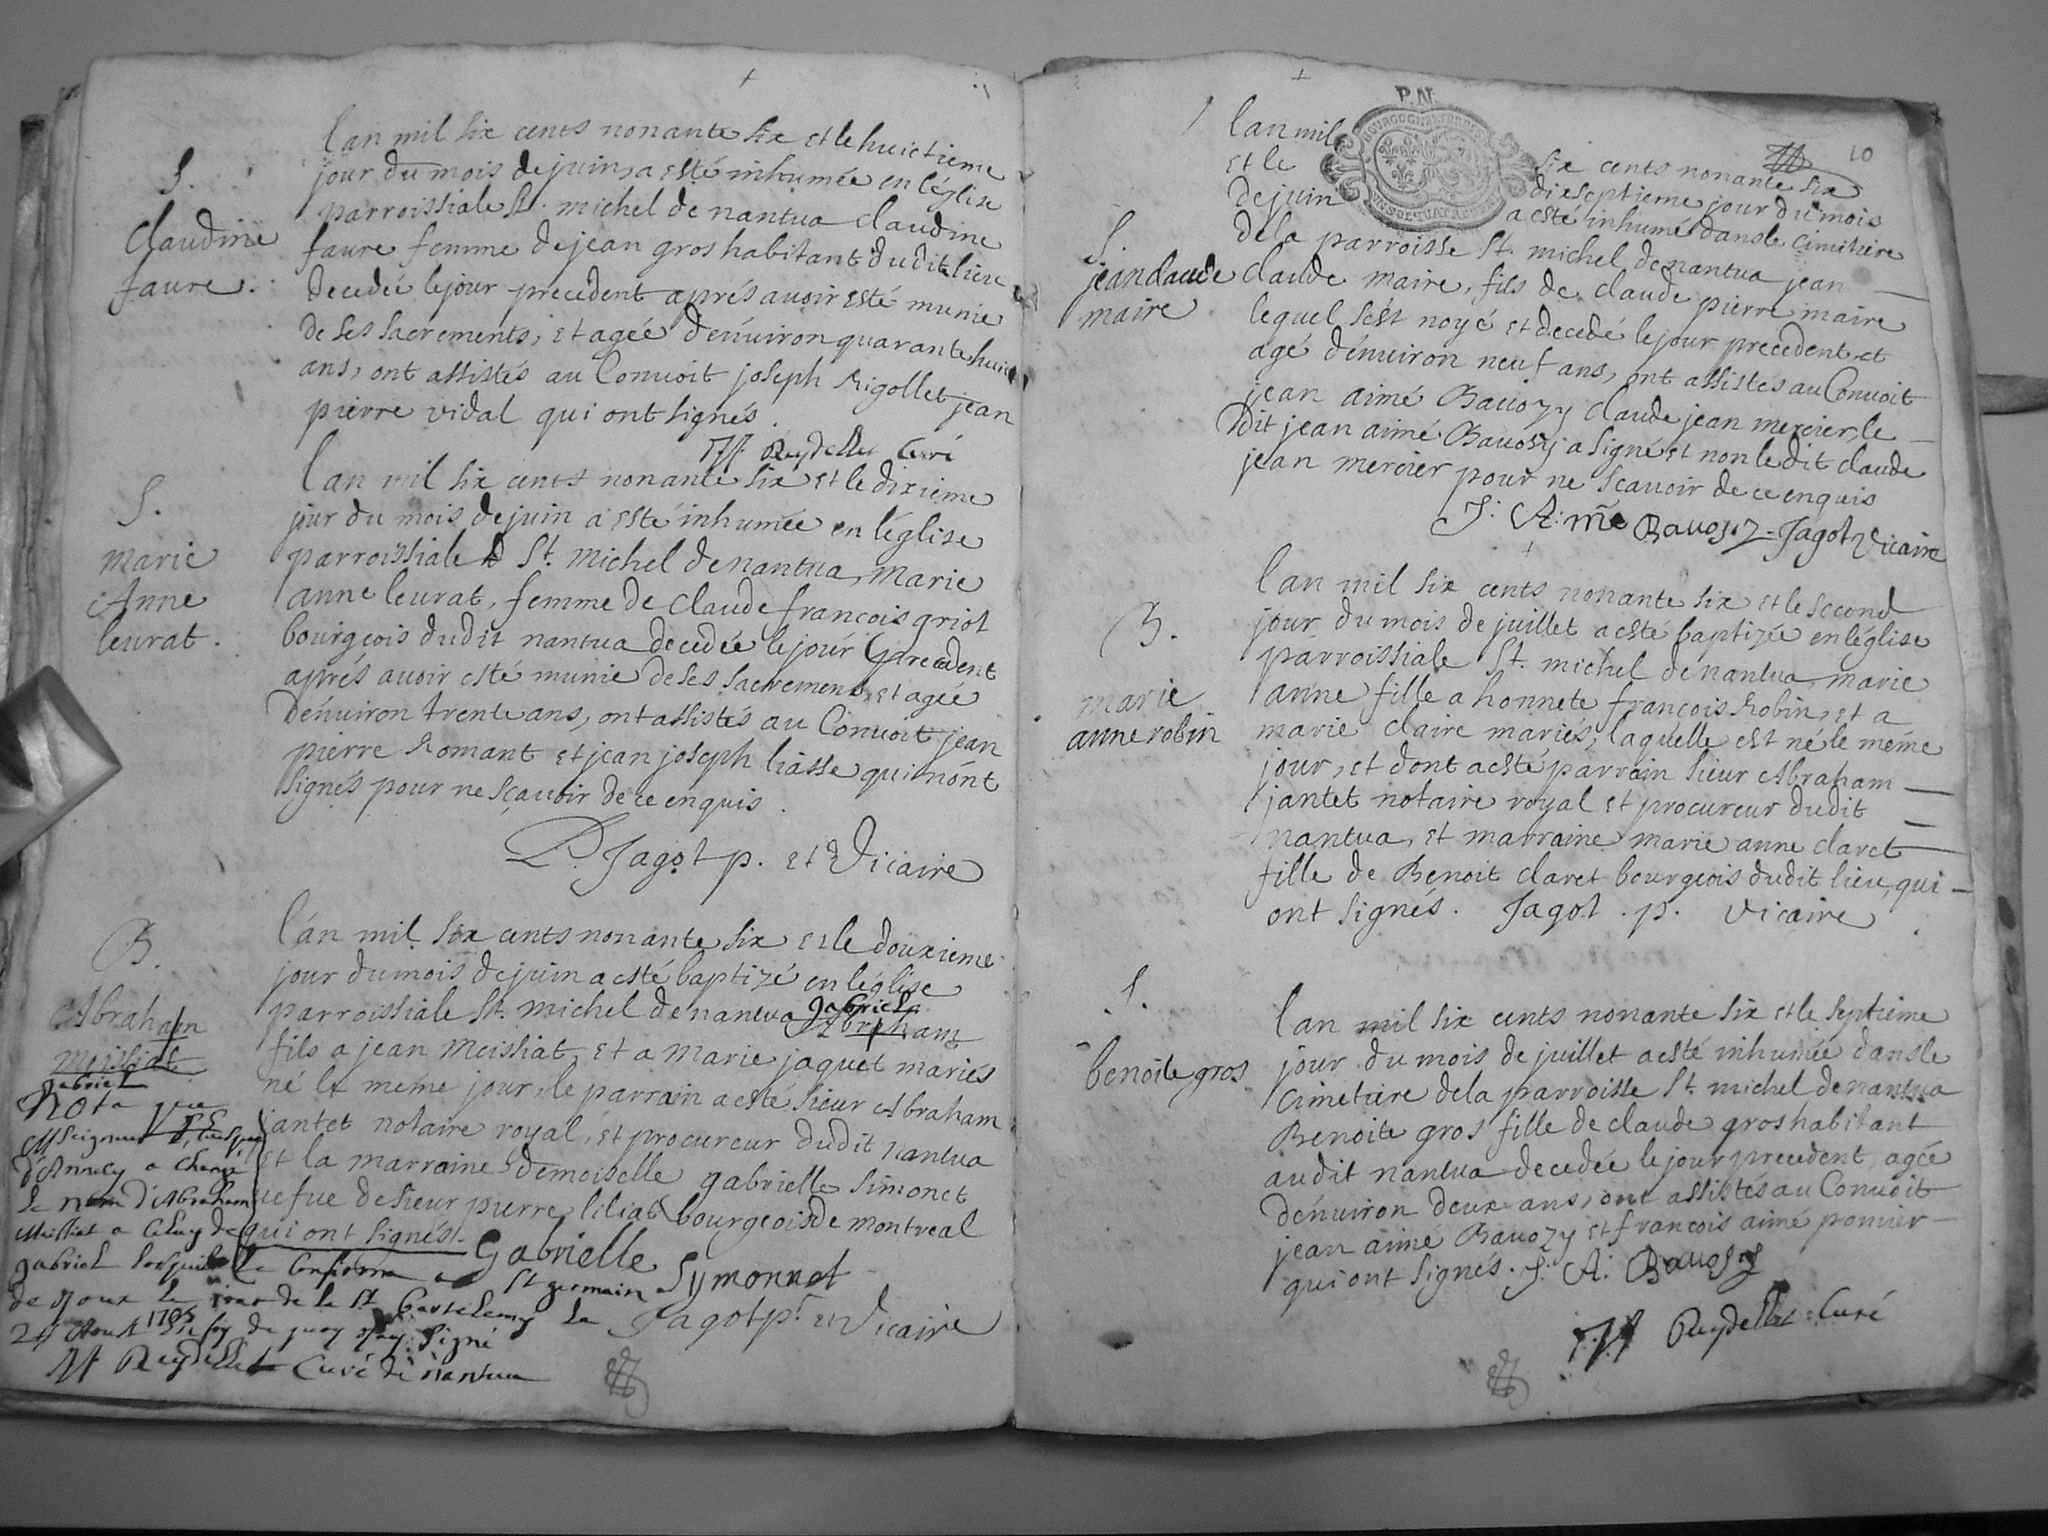 S.
Claudine
faure.
lan mil six cents nonante six et le huictieme
jour du mois de juin, a esté inhumée en l'église
parroissiale St. michel de nantua Claudine
faure femme de jean gros habitant dudit lieu
decedée le jour precedent aprés auoir esté munie
de ses sacrements, et agée d'enuiron quarante huict
ans, ont assistés au Conuoit joseph Rigollet jean
pierre vidal qui ont signés.
Reydellet Curé
S.
marie
Anne
leurat.
l'an mil six cents nonante six et le dixieme
jour du mois de juin a esté inhumée en l'église
parroissiale St. michel de nantua, marie
anne leurat, femme de claude francois griot
bourgeois dudit nantua decedée le jour precedent
aprés auoir esté munie de ses sacrements et agée
d'enuiron trente ans, ont assistés au Conuoit jean
pierre Romant et jean joseph liasse qui n'ont
signés pour ne sçauoir de ce enquis.
P. Jagot p. et Vicaire
B.
Abraham
Meissiat
gabriel
l'an mil six cents nonante six et le douxieme
jour du mois de juin a esté baptizé en l'église
gabriel
parroissiale St. michel de nantua Abraham
fils a jean Meissiat, et a Marie jaquet mariés
né le méme jour, le parrain a esté sieur Abraham
jantet notaire royal, et procureur dudit nantua
et la marraine demoiselle gabrielle simonet
uefue de sieur pierre liliat bourgeois de montreal
qui ont signés.
Gabrielle
Symonnet
Jagot pr. et Vicaire
Nota que
Mseigneur
d'Annecy a changé
le nom d'Abraham
Meissiat a Celuy de
gabriel lorsquil le Confirma a St germain
de Joux le jour de la St Bartelemy le
24 Aout 1705 en foy de quoy j'ay signé
Reydellet Curé de Nantua
P. NE
10
S.
jean claude
maire
lan mil six cents nonante six
et le dixseptieme jour du mois
de juin a esté inhumé dans le cimetiere
de la parroisse St. michel de nantua jean
claude maire, fils de claude pierre maire
lequel s'est noyé et decedé le jour precedent, et
agé d'enuiron neuf ans, ont assistés au Conuoit
jean aimé Bauozy claude jean mercier, le
dit jean aimé Bauosy a signé et non le dit claude
jean mercier pour ne sçauoir de ce enquis
J: A: mé Bauosy Jagot Vicaire
B.
marie
anne robin
l'an mil six cents nonante six et le second
jour du mois de juillet a esté baptizée en l'église
parroissiale St. michel de nantua, marie
anne fille a honnete françois Robin, et a
marie claire mariés, laquelle est née le méme
jour, et dont a esté parrain sieur Abraham
jantet notaire royal et procureur dudit
nantua, et marraine marie anne claret
fille de Benoit claret bourgeois dudit lieu, qui
ont signés. Jagot . p. vicaire
S.
benoite gros
lan mil six cents nonante six et le septieme
jour du mois de juillet a esté inhumée dans le
cimetiere de la parroisse St. michel de nantua
Benoite gros fille de claude gros habitant
audit nantua decedée le jour precedent, agée
d'enuiron deux ans, ont assistés au Conuoit
jean aimé Bauozy et francois aimé ponier
qui ont signés. J: A: Bauosy
Reydellet Curé